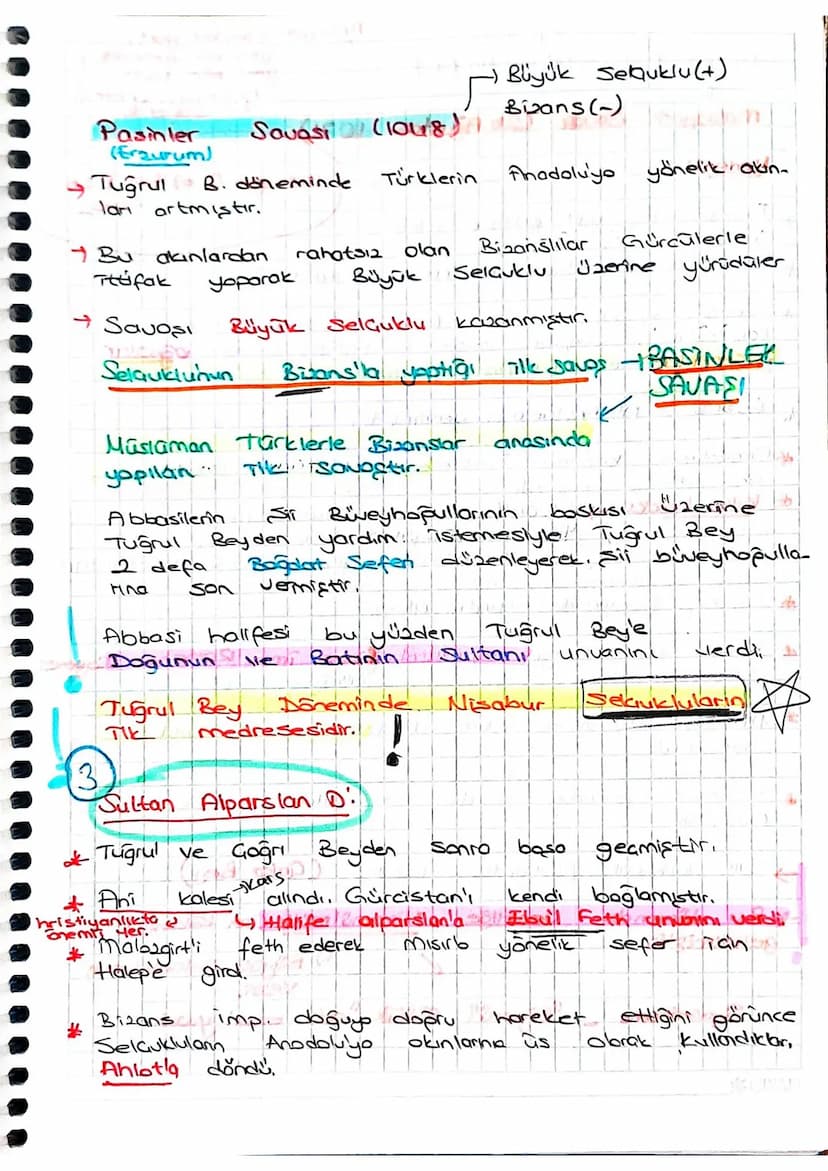 → Büyük Selçuklu (+)
Bizans (-)
Pasinler Savaşı (1048)
(Erzurum)
→ Tuğrul B. döneminde Türklerin Anadolu'ya yönelik akın-
ları artmıştır.
→ Bu akınlardan rahatsız olan Bizanslılar Gürcülerle
ittifak yaparak Büyük Selçuklu üzerine yürüdüler
→ Savaşı Büyük Selçuklu kazanmıştır.
Selçuklu'nun Bizans'la yaptığı ilk savaş → PASİNLER
SAVAŞI
Müslüman Türklerle Bizanslar arasında
yapılan ilk savaştır.
Abbasilerin Şii Büveyhoğullarının baskısı üzerine
Tuğrul Beyden yardım istemesiyle Tuğrul Bey
2 defa Bağdat Seferi düzenleyerek. Şii büveyhoğulla-
rına son vermiştir.
Abbasi halifesi bu yüzden Tuğrul Bey'e
Doğunun ve Batının Sultanı unvanını verdi.
Tuğrul Bey Döneminde Nişabur Selçukluların
İlk medresesidir. !
3
Sultan Alparslan D:
* Tuğrul ve Çağrı Beyden sonra başa geçmiştir.
* Ani kalesi → Kars alındı. Gürcistan'ı kendi bağlamıştır.
hristiyanlıkta önemli yer.
↳ Halife alparslan'a Ebu'l Feth unvanını verdi.
* Malazgirt'i feth ederek Mısır'a yönelik sefer için
Halep'e girdi.
* Bizans imp. doğuya doğru hareket ettiğini görünce
Selçukluların Anadolu'ya akınlarına üs olarak kullandıkları,
Ahlat'a döndü.